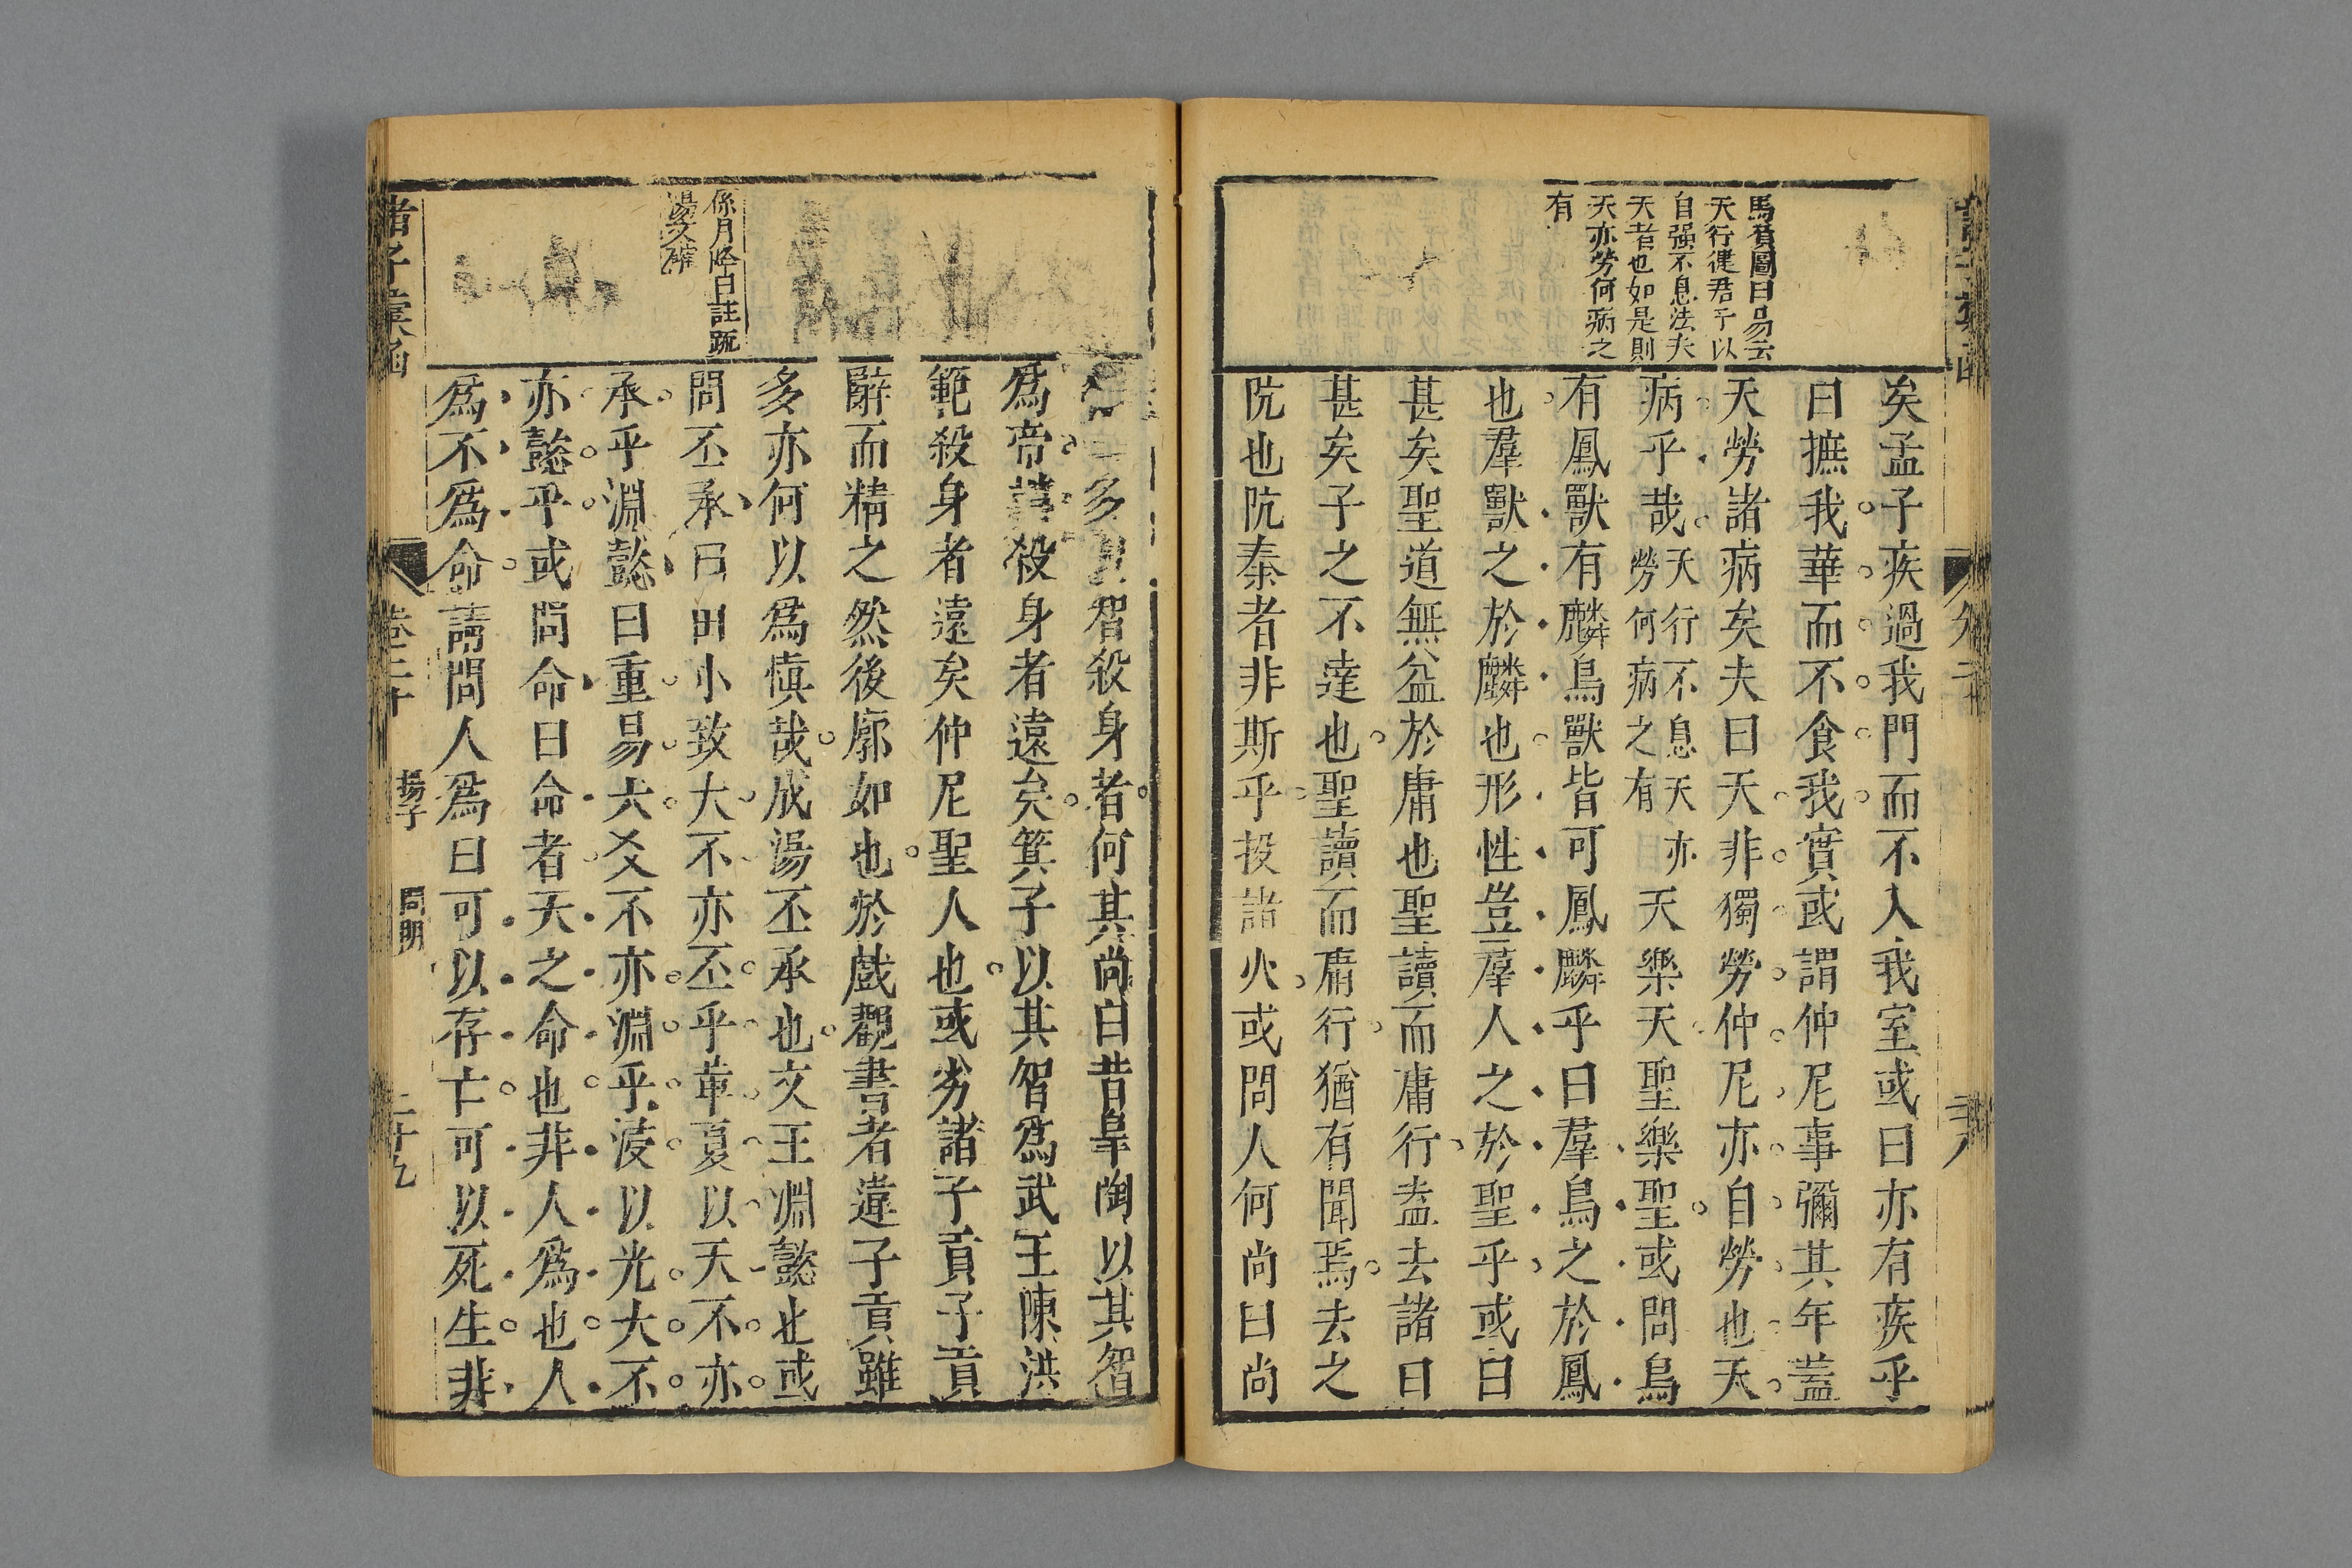 馬賁圖曰易云
天行健君子以
自强不息法夫
天者也如是則
天亦勞何病之
有
矣孟子疾過我門而不入我室或曰亦有疾乎
曰摭我華而不食我實或謂仲尼事彌其年蓋
天勞諸病矣夫曰天非獨勞仲尼亦自勞也天
病乎哉天行不息天亦勞何病之有天樂天聖樂聖或問鳥
有鳳獸有麟鳥獸皆可鳳麟乎曰羣鳥之於鳳
也羣獸之於麟也形性豈羣人之於聖乎或曰
甚矣聖道無益於庸也聖讀而庸行盍去諸曰
甚矣子之不達也聖讀而庸行猶有聞焉去之
阬也阬秦者非斯乎投諸火或問人何尚曰尚
係月峰曰註疏
湯文確
多以智殺身者何其尚曰昔皐陶以其智
爲帝謨殺身者遠矣箕子以其智爲武王陳洪
範殺身者遠矣仲尼聖人也或劣諸子貢子貢
辭而精之然後廓如也於戲觀書者違子貢雖
多亦何以爲慎哉成湯丕承也文王淵懿也或
問丕承曰由小致大不亦丕乎革夏以天不亦
承乎淵懿曰重易六爻不亦淵乎浸以光大不
亦懿乎或問命曰命者天之命也非人爲也人
爲不爲命請問人爲曰可以存亡可以死生非
諸子彙函
卷二十
揚子
問明
二十九